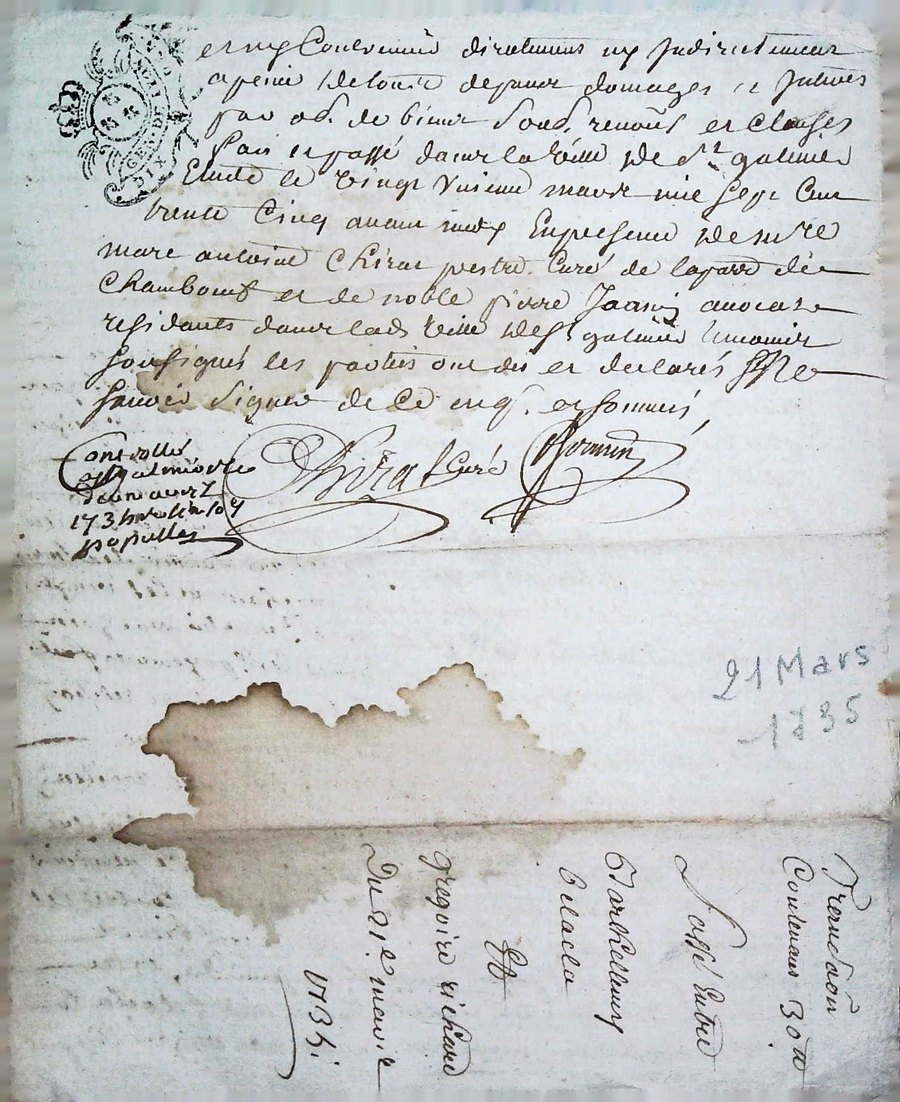 et ny Contrevenir directement ny Indirectement
a peine de tous depans domages et Interes
par ob. de biens Soub. renons et Clauses
fait et passé dans la ville de St galmier
Etude le vingt Unieme mars mil sept Cent
trente Cinq avant midy En presence de mre
marc antoine Chirat prestre Curé de la parr de
Chambœuf et de noble pierre avocat
residants dans lad. ville de St galmier
soussignés les parties ont dit et declarés ne
scavoir signer de Ce enq. et sommés
Chirat Curé
Controllé
a St galmier le
173
21 Mars
1735
Coutenant 30
passé Entre
Barthellemy
Et
gregoire richard
Du 21e mars
1735